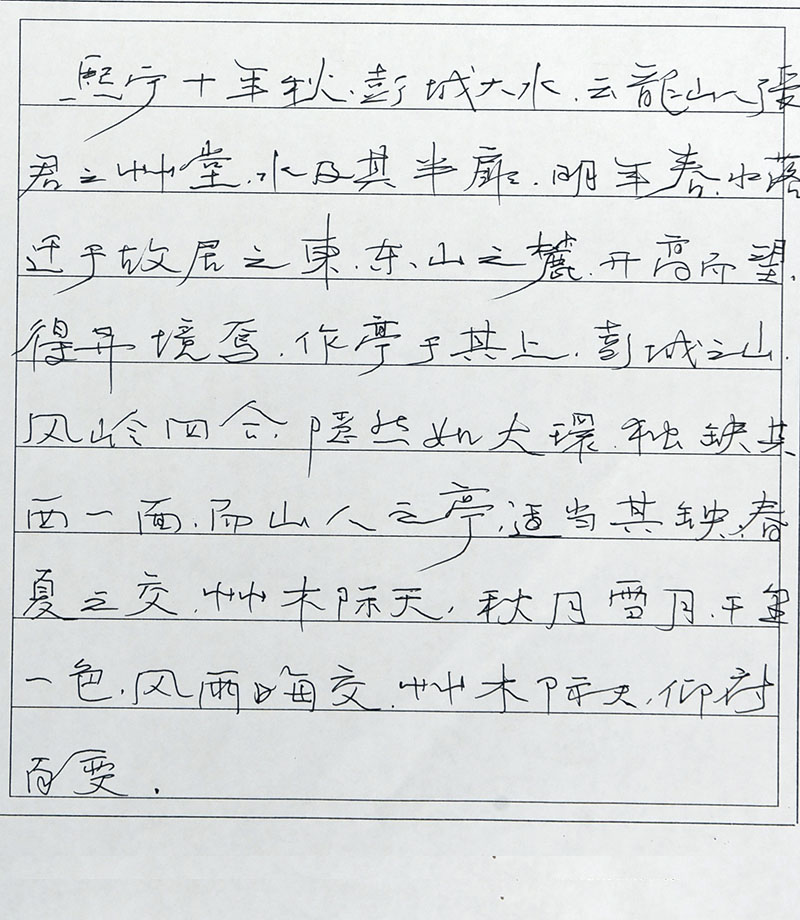 熙宁十年秋.彭城大水.云龍山人張
君之艸堂.水及其半扉.明年春.水落
迁于故居之東.东山之麓.升高而望.
得异境焉.作亭于其上.彭城之山.
风岭四合.隐然如大環.独缺其
西一面.而山人之亭.适当其缺.春
夏之交.艸木际天.秋月雪月.千里
一色.风雨晦交.艸木际天.仰
百变.